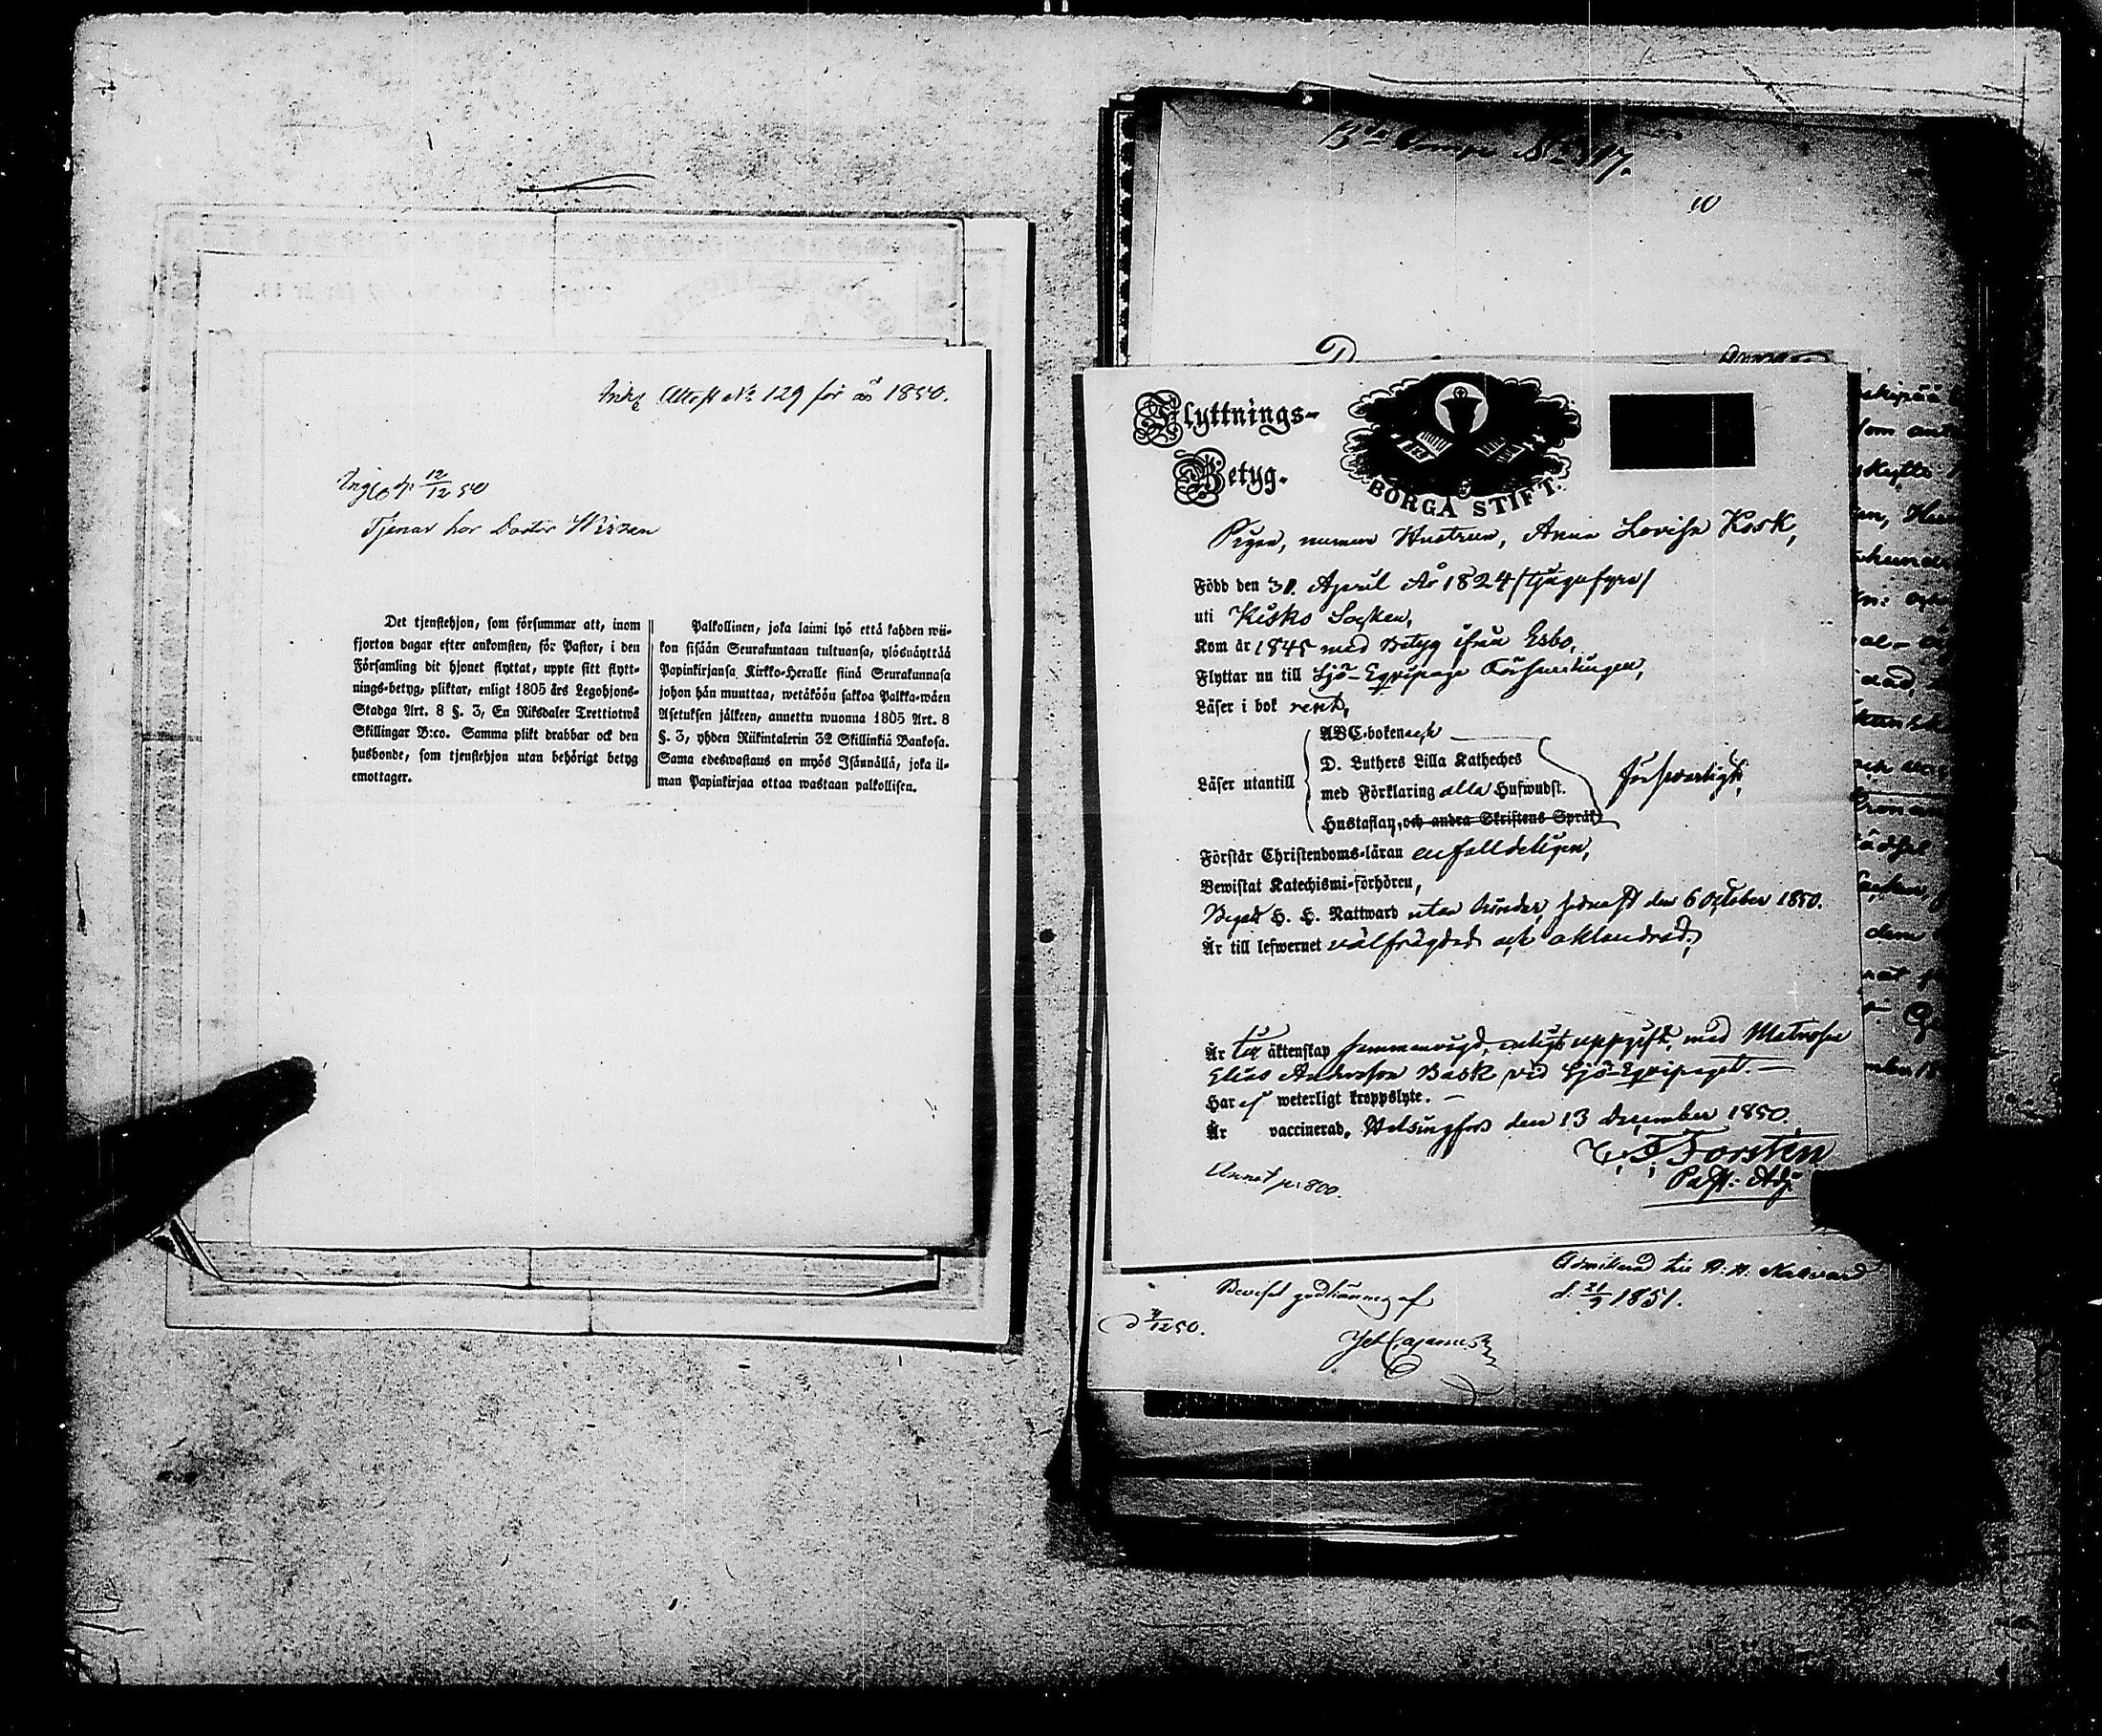 Attest No 129 för år 1850.
12/12 50
Tjenar hos Doctor Wirzen
Det tjenstehjon, som försummar att, inom
fjorton dagar efter ankomsten, för Pastor, i den
Församling dit hjonet flyttat, uppte sitt flytt-
nings-betyg, pliktar, enligt 1805 års Legohjons-
Stadga Art. 8 §. 3, En Riksdaler Trettiotwå
Skillingar B:co. Samma plikt drabbar ock den
husbonde, som tjenstehjon utan behörigt betyg
emottager.
Palkollinen, joka laimi lyö että kahden wii-
kon sisään Seurakuntaan tultuansa, ylösnäyttää
Papinkirjansa Kirkko-Heralle siinä Seurakunnasa
johon hän muuttaa, wetäköön sakkoa Palkka-wäen
Asetuksen jälkeen, annettu wuonna 1805 Art. 8
§. 3, yhden Riikintalerin 32 Skillinkiä Bankosa.
Sama edeswastaus on myös Isännällä, joka il-
man Papinkirjaa ottaa wastaan palkollisen.
No 117.
10
Flyttnings-
Betyg.
BORGÅ STIFT.
Pigan, numera Hustrun, Anna Lovisa Kosk,
Född den 30. April År 1824 /tjugufyra/
uti Kisko Socken,
Kom år 1845 med Betyg ifrån Esbo,
Flyttar nu till Sjö-Equipage Församlingen,
Läser i bok rent,
ABC-boken och
D. Luthers Lilla Katheches
Läser utantill
med Förklaring alla Hufwudst.
försvarligt,
Hustaflan, och andra Skriftens Språk
Förstår Christendoms-läran enfalldeligen,
Bewistat Katechismi-förhören,
Begått H. H. Nattward utan hinder, sednast den 6 October 1850.
Är till lefwernet välfrägdad och oklandrad;
Är till äktenskap sammanvigd, enligt uppgift, med Matrosen
Elias Andersson Bask vid Sjö-Equipaget. —
Har ej weterligt kroppslyte. —
Är vaccinerad, Helsingfors den 13 December 1850.
Forstén
Past: Adj.
Annot p: 800.
Beviset godkännes af
d 4/12 50.
Admitterad till H: H: Nattvard
d. 21/9 1851.